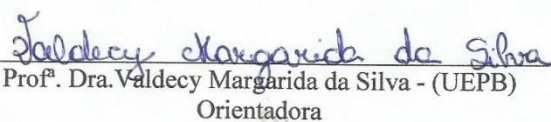 Valdecy Margarida da Silva
Profª. Dra.Valdecy Margarida da Silva - (UEPB)
Orientadora